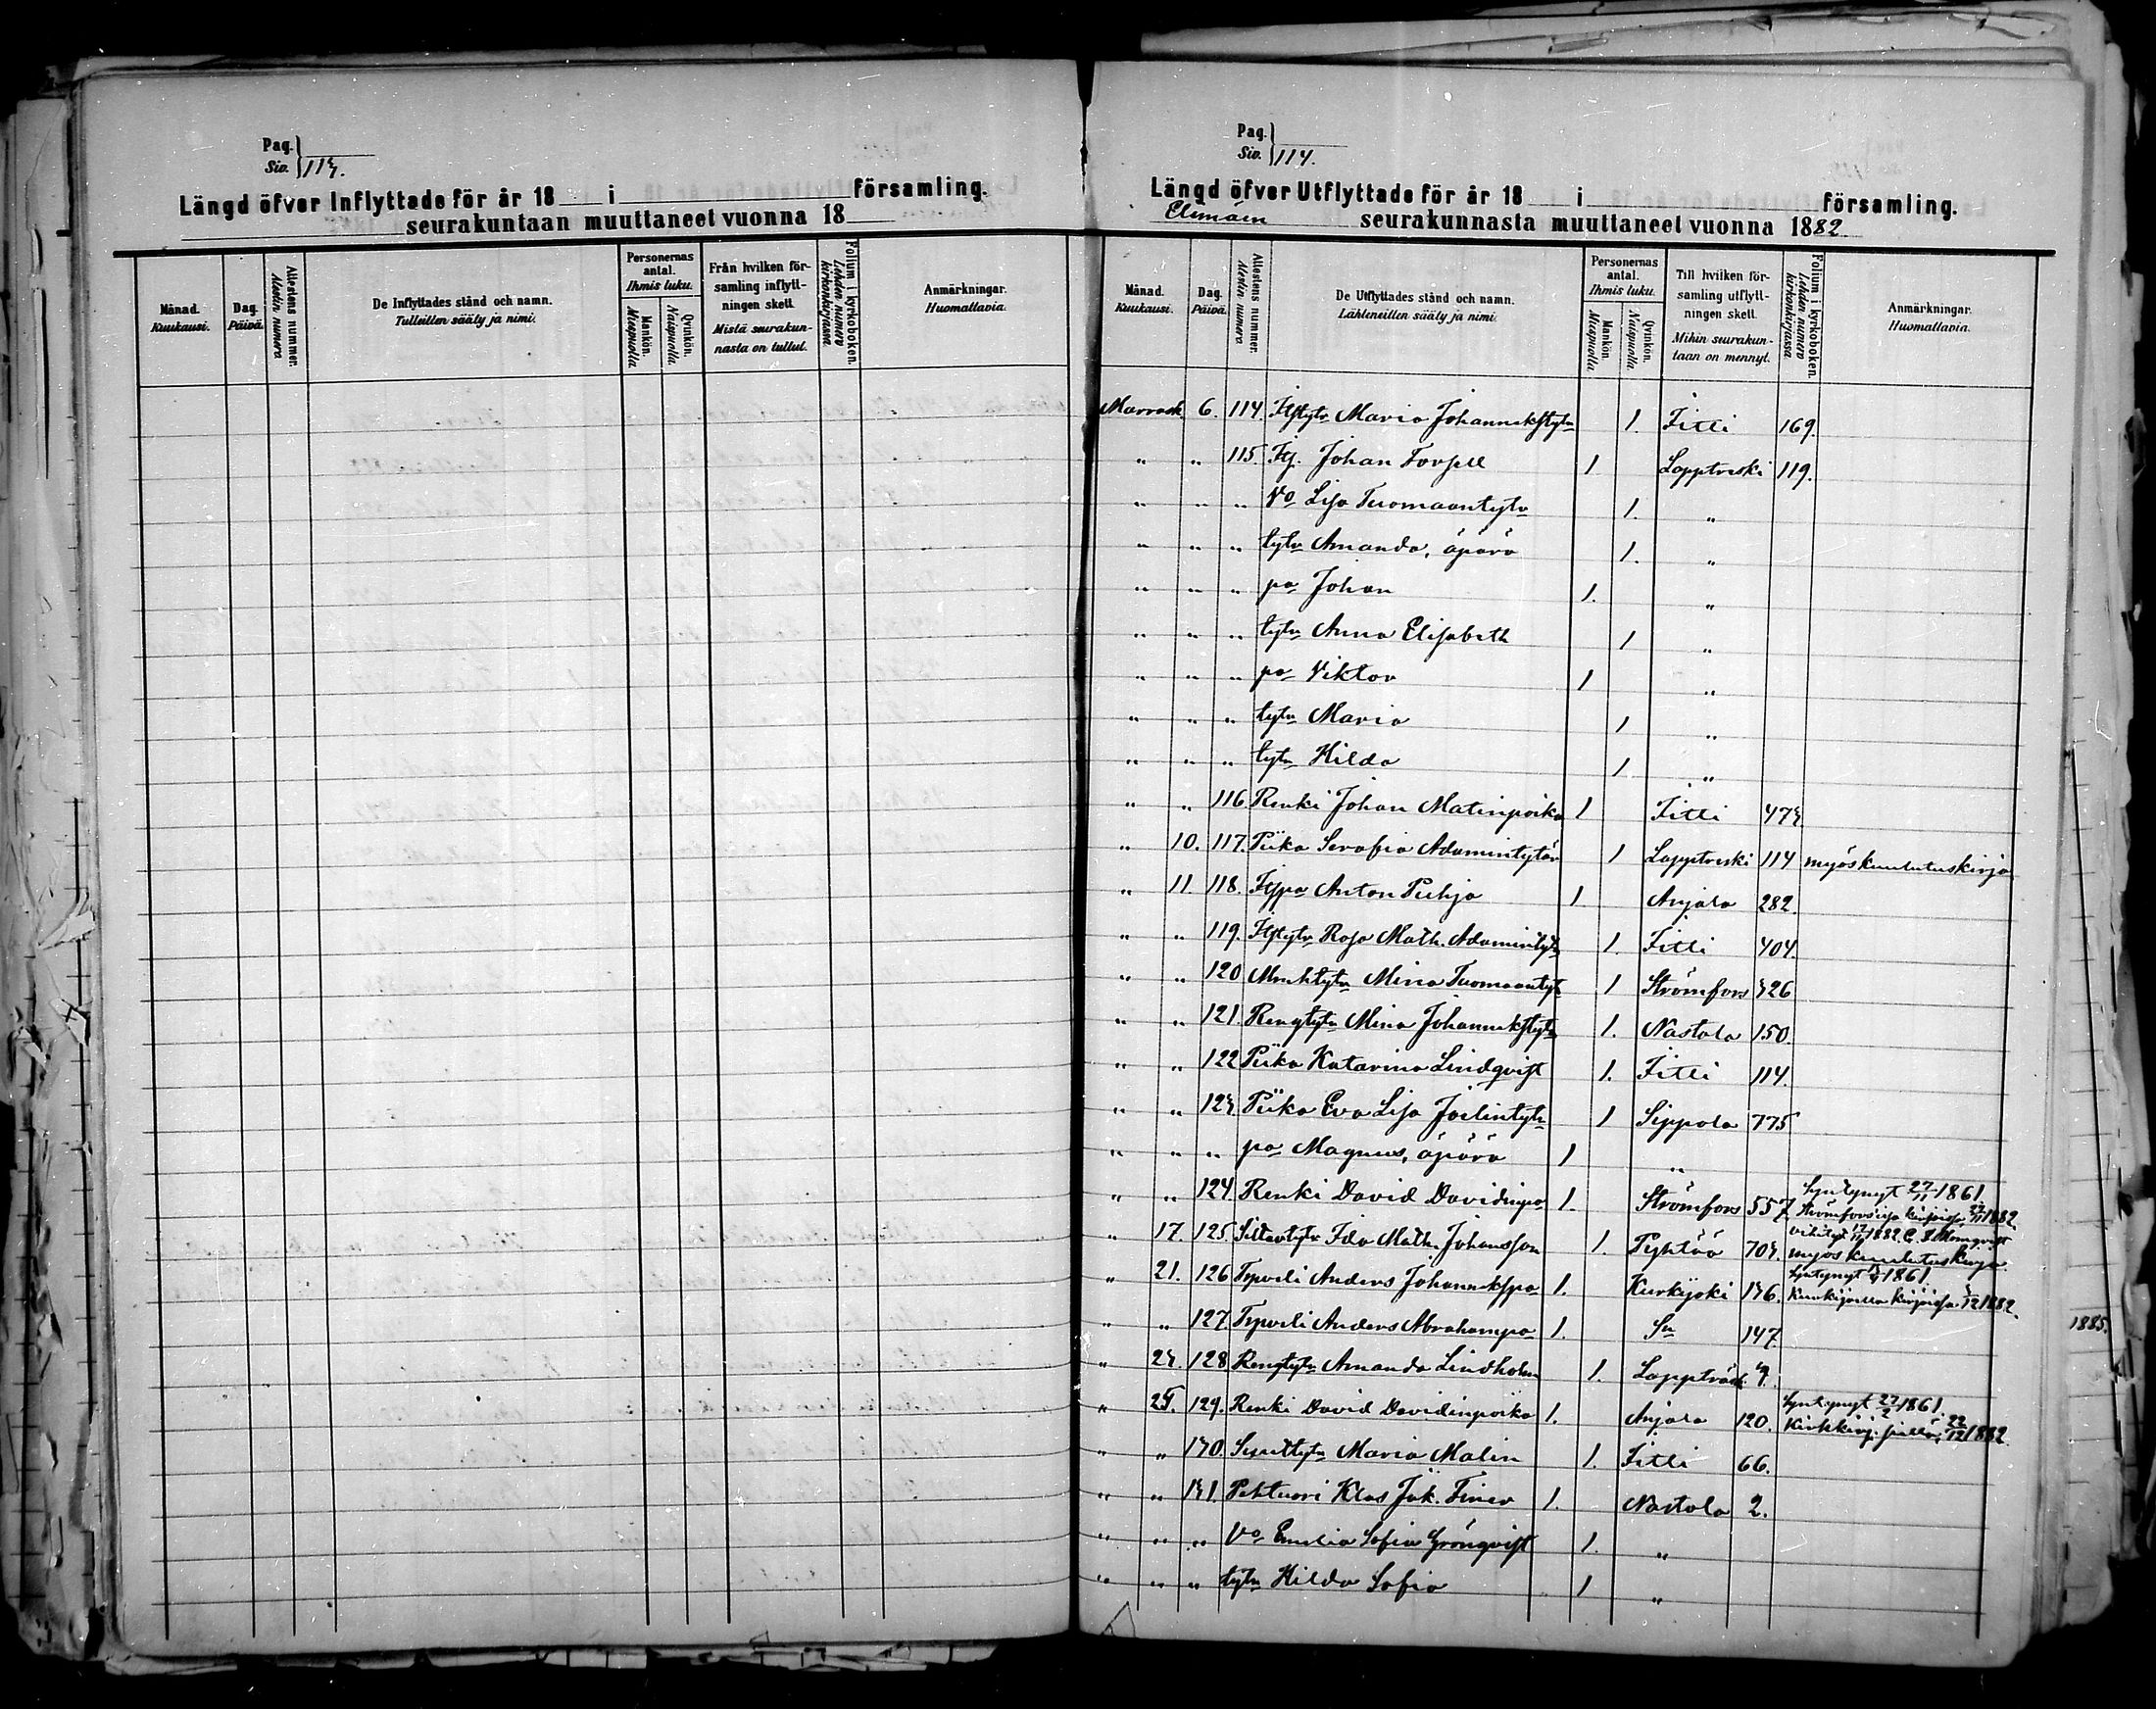 Pag.
Siv. 113.
Längd öfver Inflyttade för år 18 i församling.
seurakuntaan muuttaneet vuonna 18
Månad. Kuukausi.
Dag. Päivä.
Attestens nummer. Alestin numera
De Inflyttades stånd och namn.
Tulleitten sääty ja nimi.
Personernas antal. Ihmis luku.
Mankön. Miespuolia
Qvinkön. Naispuolia.
Från hvilken församling inflyttningen skett.
Mistä seurakunnasta on tullut.
Folium i kyrkoboken. Lehden numero kirkonkirjassa
Anmärkningar.
Huomattavia.
Pag.
Siv. 114.
Längd öfver Utflyttade för år 18 i församling.
Elimäen seurakunnasta muuttaneet vuonna 1882
Månad. Kuukausi.
Dag. Päivä.
Attestens nummer. Alestin numera
De Utflyttades stånd och namn.
Lähteneitten sääty ja nimi.
Personernas antal. Ihmis luku.
Mankön. Miespuolia
Qvinkön. Naispuolia.
Till hvilken församling utflyttningen skett.
Mihin seurakuntaan on mennyt.
Folium i kyrkoboken. Lehden numero kirkonkirjassa
Anmärkningar.
Huomattavia.
Marrask. 6. 114. Itstytr Maria Johannukstytr 1. Iitti 169.
" " 115. Itj. Johan Forsell 1 Lapptreski 119.
" " " Vo Lisa Tuomaantytr 1. "
" " " tytr Amanda, äpärä 1. "
" " " pa Johan 1. "
" " " tytr Anna Elisabeth 1 "
" " " pa Viktor 1 "
" " " tytr Maria 1 "
" " " tytr Hilda 1 "
" " 116 Renki Johan Matinpoika 1 Iitti 473
" 10. 117. Piika Serafia Adamintytär 1 Lapptreski 114 myös kuulutuskirja
" 11. 118. Itspa Anton Puhjo 1. Anjala 282.
" " 119. Itstytr Rosa Math. Adamintytr 1. Iitti 404.
" " 120 Mnktytr Mina Tuomaantyt 1 Strömfors 326
" " 121. Rengtytr Mina Johannukstytr 1. Nastola 150.
" " 122 Piika Katarina Lindqvist 1. Iitti 114.
" " 123. Piika Eva Lisa Joelintytr 1 Sippola 775
" " " pa Magnus, äpärä 1 "
" " 124 Renki David Davidinpo 1. Strömfors 557 Syntynyt 27/11 1861
" 17. 125. Siltavtytr Ida Math. Johansson 1. Pyhtää 703. myös kuulutuskirja
" 21. 126 Torpvili Anders Johannukspo 1. Kurkijoki 136. Syntynyt 1861.
" " 127. Torpvili Anders Abrahampo 1. Sn 147.
" 23. 128 Rengtytr Amanda Lindholm 1. Lappträsk. 9.
" 25. 129. Renki David Davidinpoika 1. Anjala 120. Syntynyt 27/2 1861. 22/12 1882
" " 130. Suuttytr Maria Malin 1. Iitti 66.
" " 131. Pehtuori Klas Jak. Finer 1. Nastola 2.
" " " Vo Emelia Sofia Grönqvist 1. "
" " " tytr Hilda Sofia 1 "
1885.